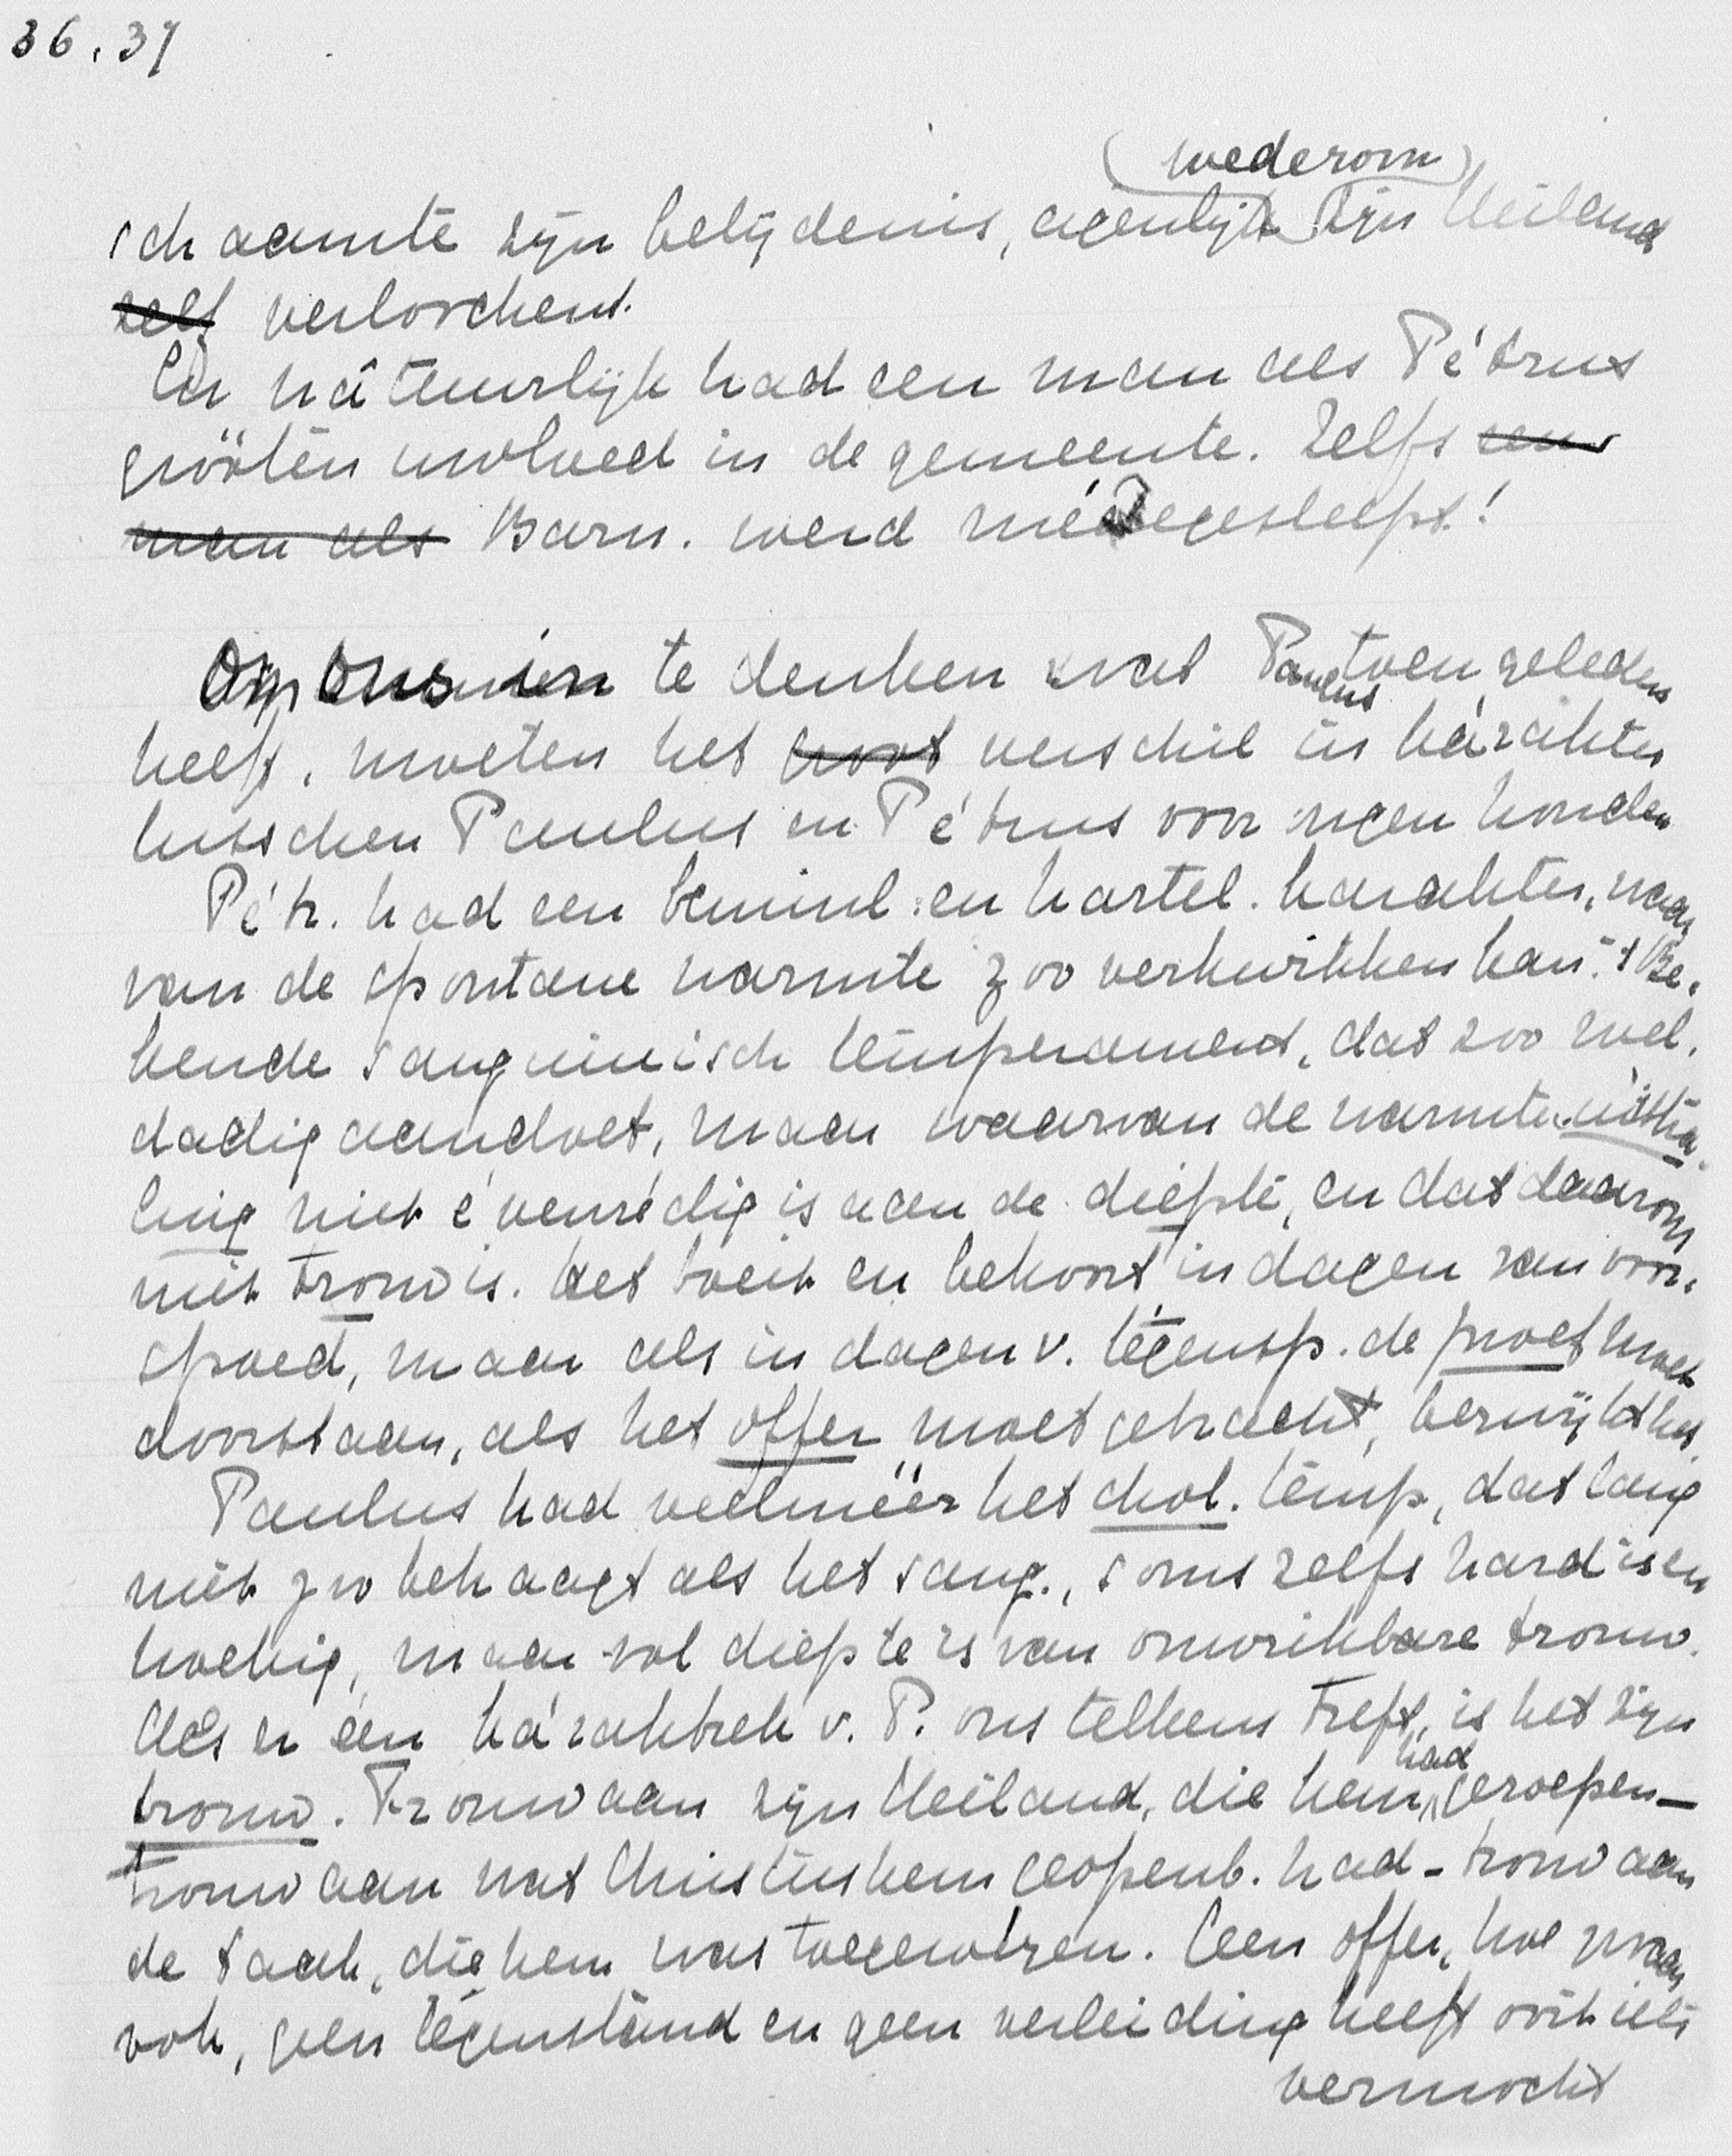 36.37
(wederom)
schaamte zijn belijdenis, eigenlijk zijn Heiland
zelf verloochent.
En nátuurlijk had een man als Pétrus
grooten invloed in de gemeente. Zelfs een
man als Barn. werd médegesleept!
Om ons in te denken wat Paulus toen geleden
heeft, moeten het groot verschil in kárakter
tusschen Paulus en Pétrus voor oogen houden
Pétr. had een beminl. en hartel. karakter, waar
van de spontane warmte zoo verkwikken kan. 't Be-
kende sanguinisch temperament, dat zoo wel-
dadig aandoet, maar waarvan de warmte-uitstra-
ling niet évenrédig is aan de diepte, en dat daarom
niet trouw is. Het boeit en bekoort in dagen van voor-
spoed, maar als in dagen v. tégensp. de proef moet
doorstaan, als het offer moet gebracht, bezwijkt het.
Paulus had veelméér het chol. temp, dat lang
niet zoo behaagt als het sang., soms zelfs hard is en
hoekig, maar vol diepte is van onwrikbare trouw.
Als er één kárakktrek v. P. ons telkens treft, is het zijn
trouw. Trouw aan zijn Heiland, die hem had geroepen—
trouw aan wat Christus hem geopenb. had - trouw aan
de taak, die hem was toegewezen. Geen offer, hoe zwaar
ook, geen tégenstand en geen verleiding heeft ooit iets
vermocht